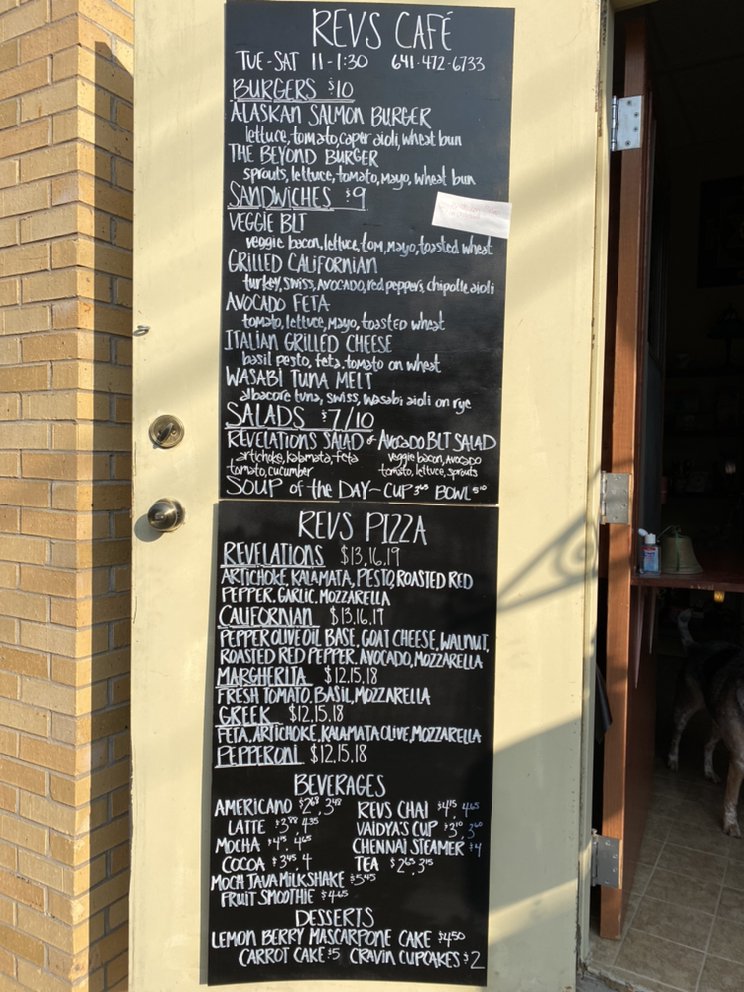 REVS CAFÉ
TUE-SAT 11-1:30 641-472-6733
BURGERS $10
ALASKAN SALMON BURGER
lettuce, tomato, caper aioli, wheat bun
THE BEYOND BURGER
sprouts, lettuce, tomato, mayo, wheat bun
SANDWICHES $9
VEGGIE BLT
veggie bacon, lettuce, tom, mayo, toasted wheat
GRILLED CALIFORNIAN
turkey, swiss, avocado, red peppers, chipotle aioli
AVOCADO FETA
tomato, lettuce, mayo, toasted wheat
ITALIAN GRILLED CHEESE
basil pesto, feta, tomato on wheat
WASABI TUNA MELT
albacore tuna, swiss, wasabi aioli on rye
SALADS $7/10
REVELATIONS SALAD & AVOCADO BLT SALAD
artichoke, kalamata, feta veggie bacon, avocado
tomato, cucumber tomato, lettuce, sprouts
SOUP of the DAY - CUP 3.65 BOWL 5.10
REVS PIZZA
REVELATIONS $13,16,19
ARTICHOKE, KALAMATA, PESTO, ROASTED RED
PEPPER, GARLIC, MOZZARELLA
CALIFORNIAN $13,16,19
PEPPER OLIVE OIL BASE, GOAT CHEESE, WALNUT,
ROASTED RED PEPPER, AVOCADO, MOZZARELLA
MARGHERITA $12,15,18
FRESH TOMATO, BASIL, MOZZARELLA
GREEK $12,15,18
FETA, ARTICHOKE, KALAMATA OLIVE, MOZZARELLA
PEPPERONI $12,15,18
BEVERAGES
AMERICANO $2.68, 3.48 REVS CHAI $4.15, 4.65
LATTE $3.88, 4.35 VAIDYA'S CUP $3.10, 3.60
MOCHA $4.15, 4.65 CHENNAI STEAMER $4
COCOA $3.45, 4 TEA $2.65, 3.15
MOCH JAVA MILKSHAKE $5.45
FRUIT SMOOTHIE $4.65
DESSERTS
LEMON BERRY MASCARPONE CAKE $4.50
CARROT CAKE $5 CRAVIN CUPCAKES $2